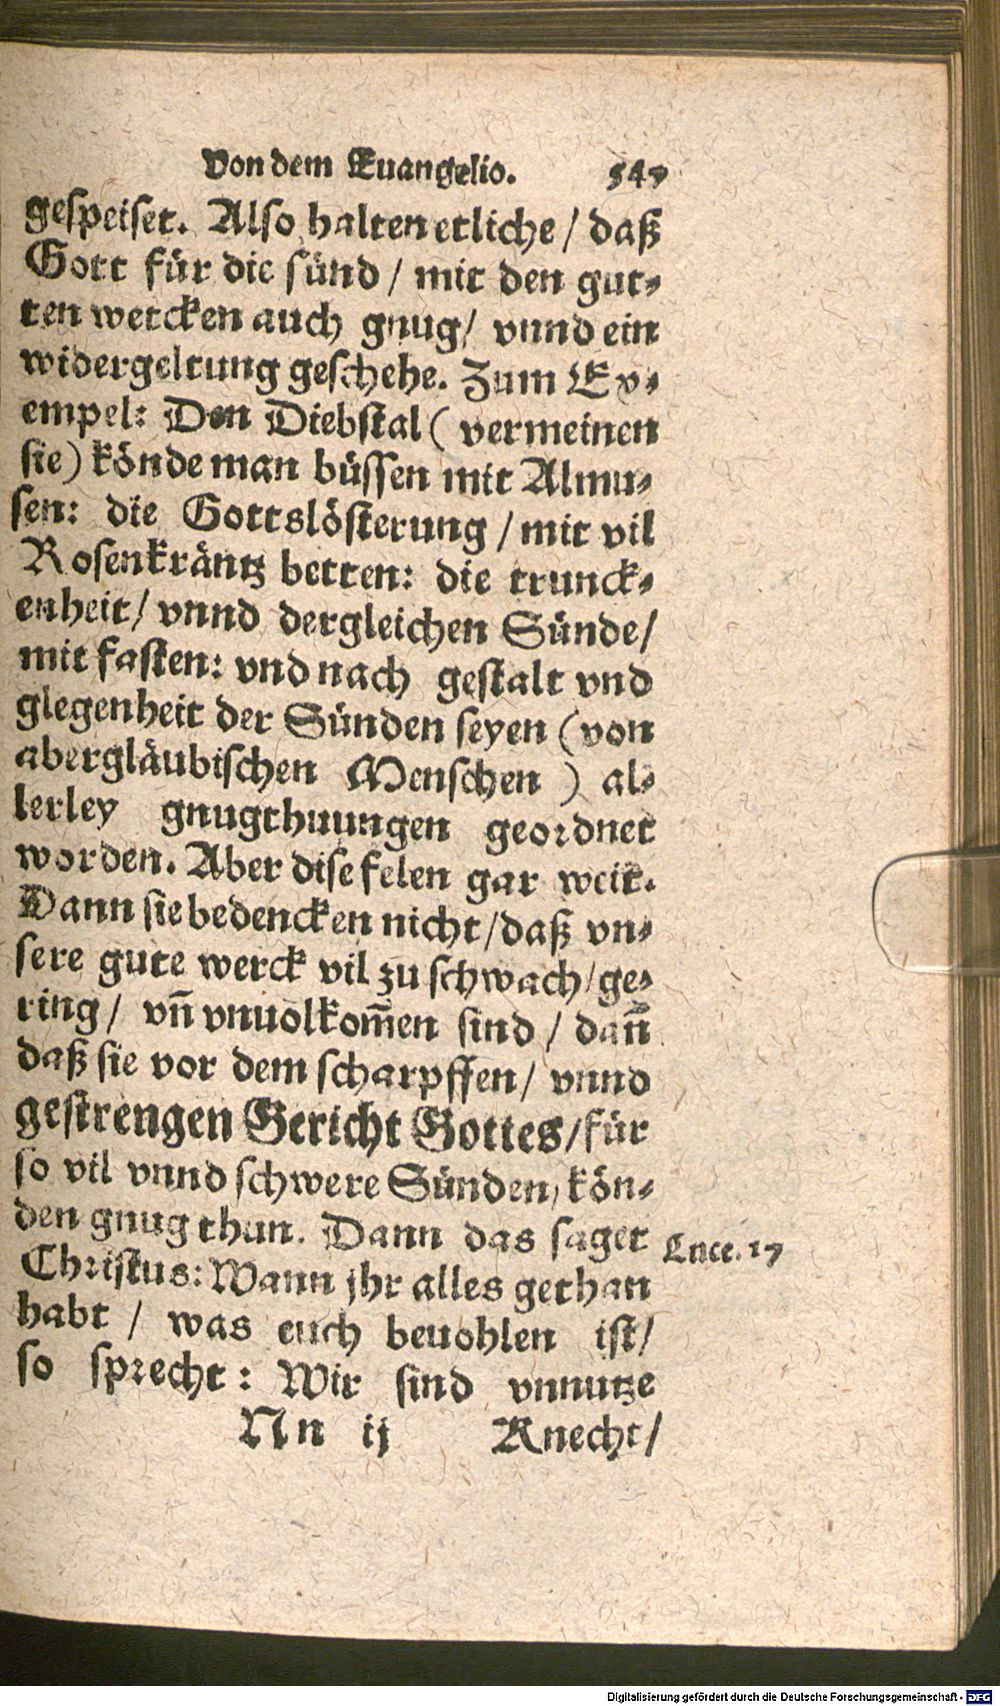 Von dem Euangelio. 547
gespeiset. Also halten etliche / daß
Gott für die sünd / mit den gut-
ten wercken auch gnug / vnnd ein
widergeltung geschehe. Zum Ex-
empel: Den Diebstal ( vermeinen
sie) könde man büssen mit Almu-
sen: die Gottslösterung / mit vil
Rosenkräntz betten: die trunck-
enheit / vnnd dergleichen Sünde /
mit fasten: vnd nach gestalt vnd
glegenheit der Sünden seyen (von
abergläubischen Menschen ) al-
lerley gnugthuungen geordnet
worden. Aber dise felen gar weit.
Dann sie bedencken nicht / daß vn-
sere gute werck vil zu schwach / ge-
ring / vn̄ vnuolkom̄en sind / dan̄
daß sie vor dem scharpffen / vnnd
gestrengen Gericht Gottes / für
so vil vnnd schwere Sünden, kön-
den gnug thun. Dann das saget
Luce. 17
Christus: Wann jhr alles gethan
habt / was euch beuohlen ist /
so sprecht: Wir sind vnnutze
Nn ij Knecht /
Digitalisierung gefördert durch die Deutsche Forschungsgemeinschaft - DFG